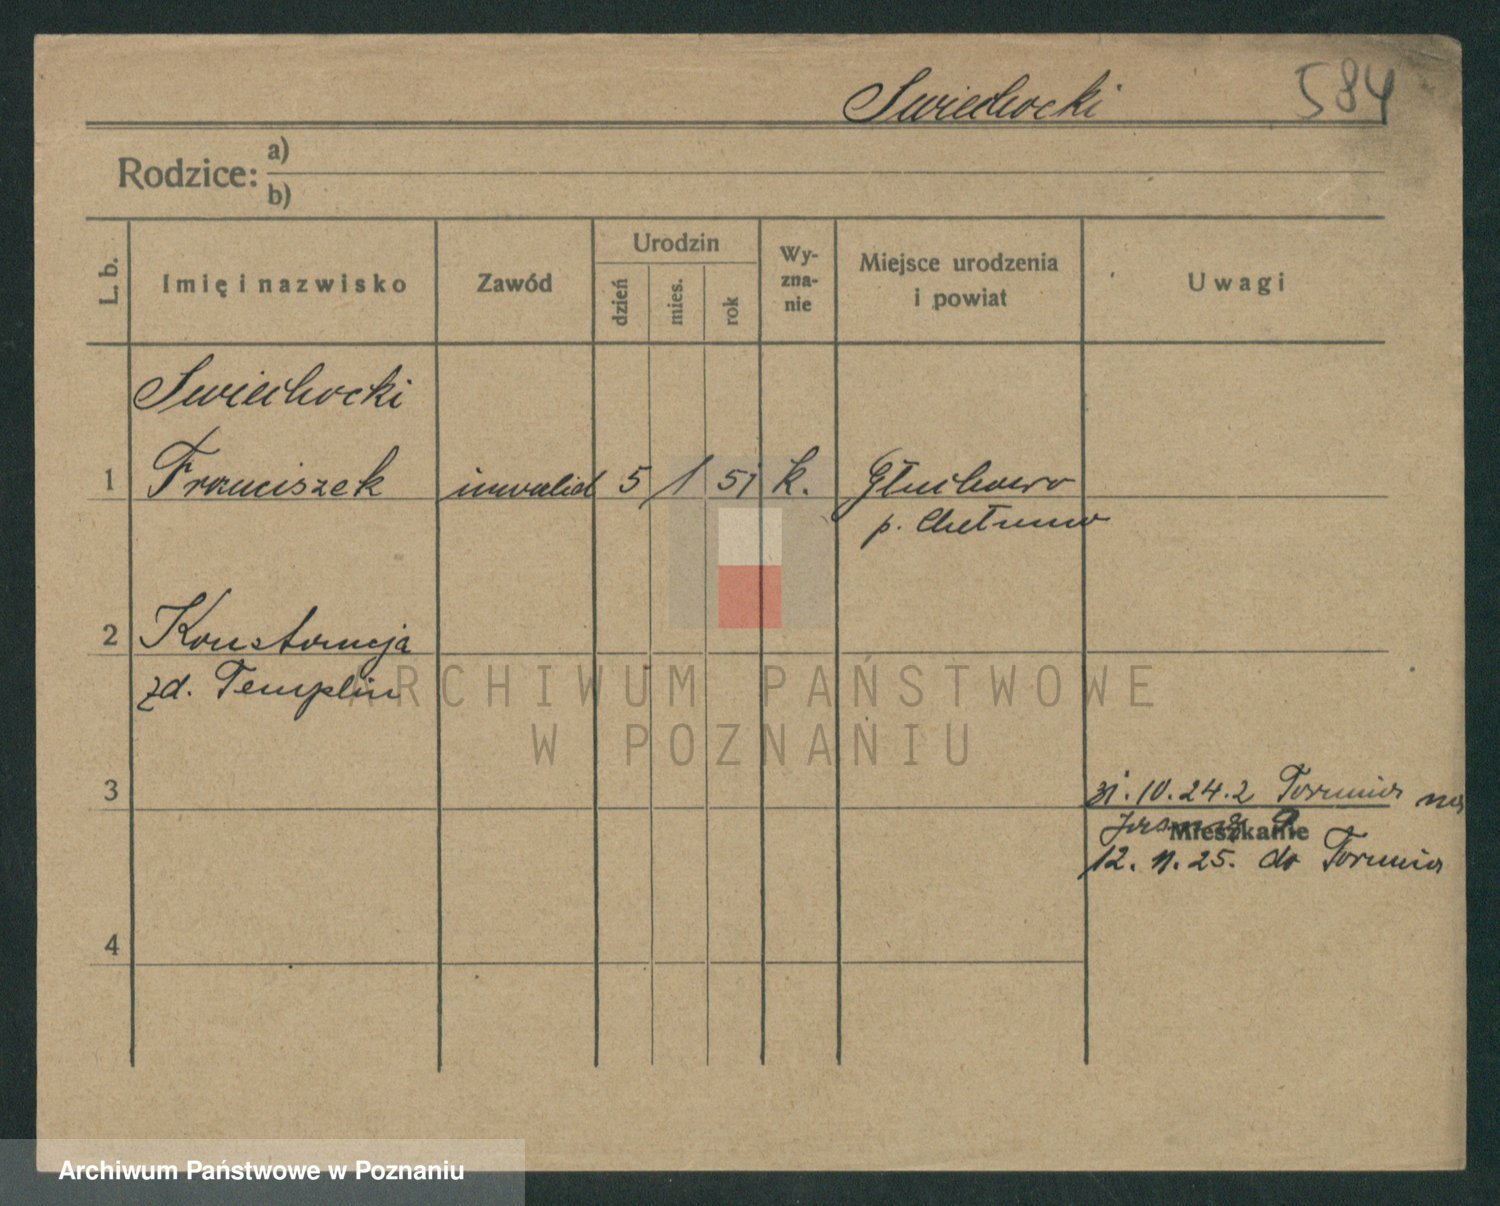 Swiechocki 584
Rodzice: a)
b)
L. b. Imię i nazwisko Zawód Urodzin dzień mies. rok Wy-zna-nie Miejsce urodzenia i powiat Uwagi
Swiechocki
1 Franciszek inwalid 5 1 51 k. Głuchowo
p. Chełmno
2 Konstancja
zd. Templin
ARCHIWUM PAŃSTWOWE
W POZNANIU
3 31.10.24. z Torunia na
Mieszkanie
12. 11. 25. do Torunia
4
Archiwum Państwowe w Poznaniu